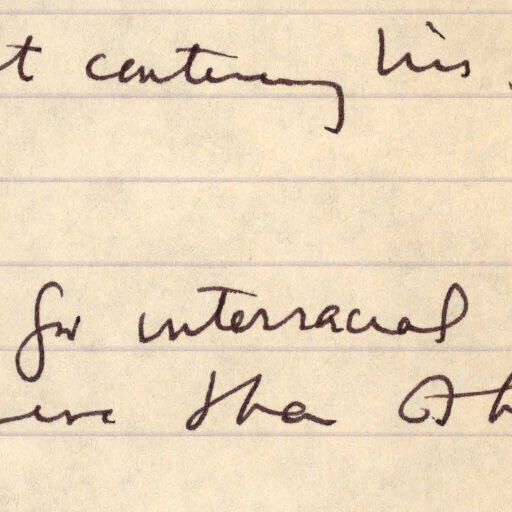 t centering his
for interracial
than